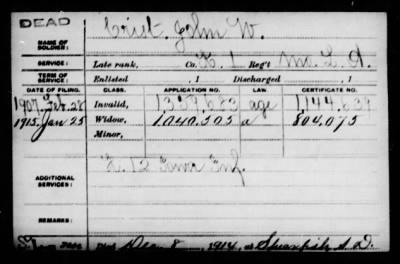 DEAD
NAME OF SOLDIER: Crist, John W.
SERVICE: Late rank, Co. K, 1 Reg't Mo. L. A.
TERM OF SERVICE: Enlisted , 1 Discharged , 1
DATE OF FILING. CLASS. APPLICATION NO. LAW. CERTIFICATE NO.
1907. Feb. 28 Invalid, 1359,683 age 1,144,634
1915. Jan 25 Widow, 1,040,505 a 804,075
Minor,
ADDITIONAL SERVICES: K. 12 Iowa Inf.
REMARKS:
Died Dec. 8, 1914, at Spearfish S. D.